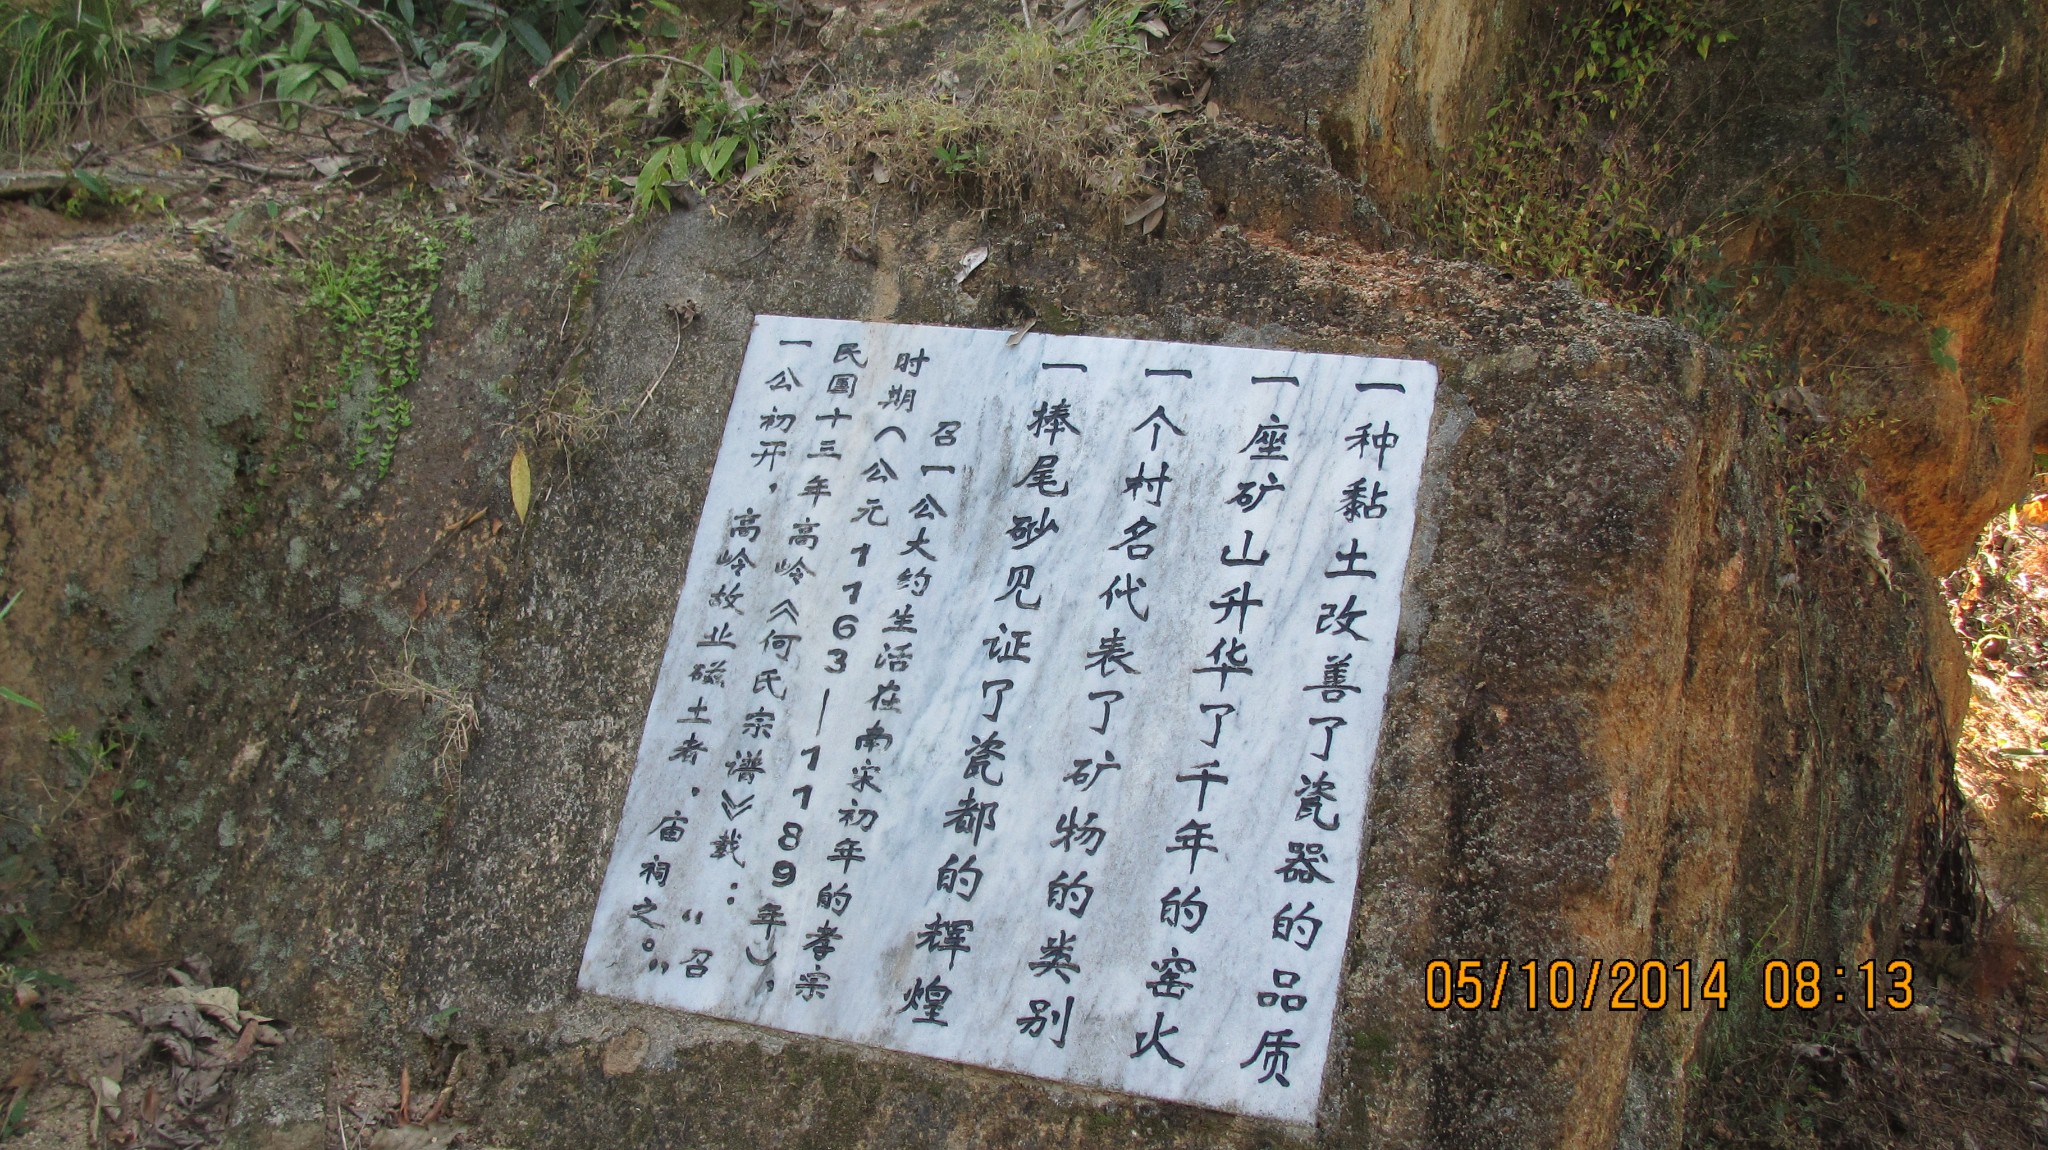 一种黏土改善了瓷器的品质
一座矿山升华了千年的窑火
一个村名代表了矿物的类别
一捧尾砂见证了瓷都的辉煌
召一公大约生活在南宋初年的孝宗
时期(公元1163—1189年),
民国十三年高岭《何氏宗谱》载:“召
一公初开,高岭故业磁土者,庙祠之。”
05/10/2014 08:13